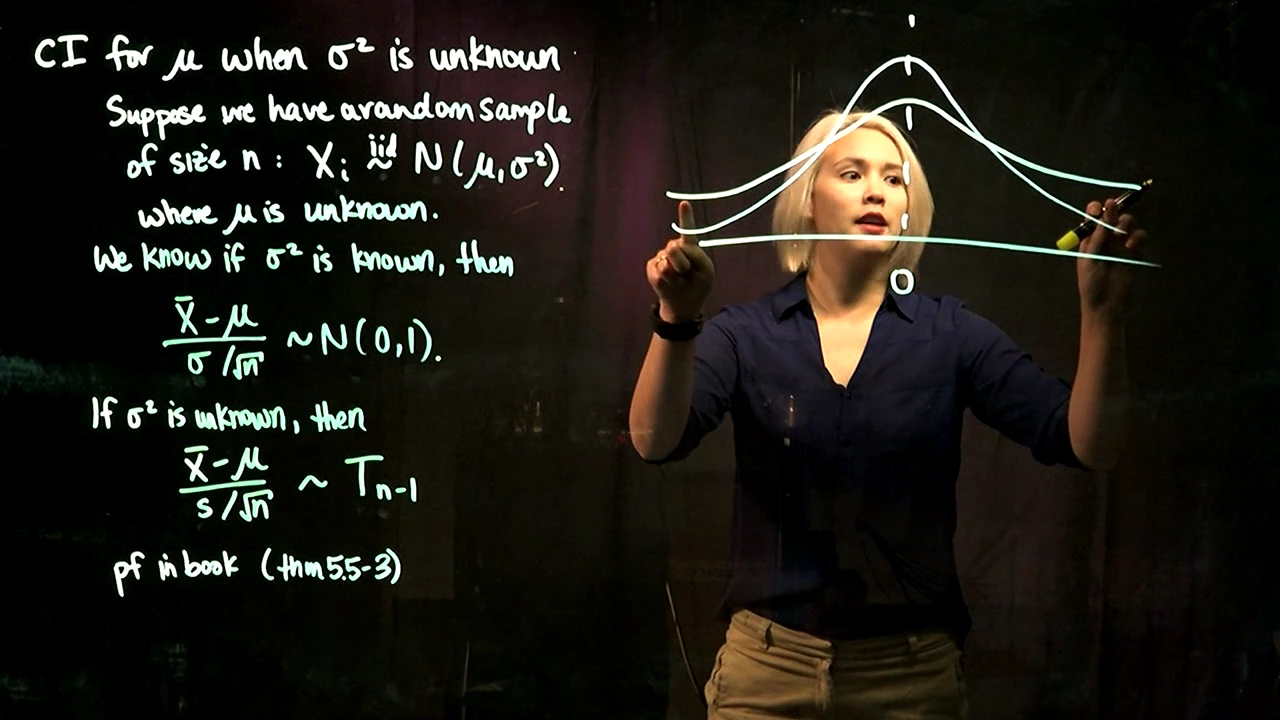 CI for μ when σ² is unknown
Suppose we have a random sample
of size n : Xᵢ iid ~ N(μ, σ²).
where μ is unknown.
We know if σ² is known, then
X̄ - μ / σ/√n ~ N(0,1).
If σ² is unknown, then
X̄ - μ / s/√n ~ Tn-1
pf in book (thm 5.5-3)
0